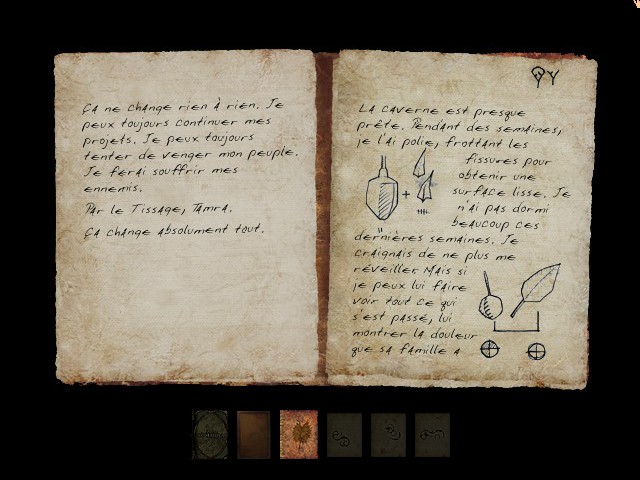 ça ne change rien à rien. Je
peux toujours continuer mes
projets. Je peux toujours
tenter de venger mon peuple.
Je ferai souffrir mes
ennemis.
Par le Tissage, Tamra.
ça change absolument tout.
La caverne est presque
prête. Pendant des semaines,
je l'ai polie, frottant les
fissures pour
obtenir une
surface lisse. Je
n'ai pas dormi
beaucoup ces
dernières semaines. Je
craignais de ne plus me
réveiller Mais si
je peux lui faire
voir tout ce qui
s'est passé, lui
montrer la douleur
que sa famille a